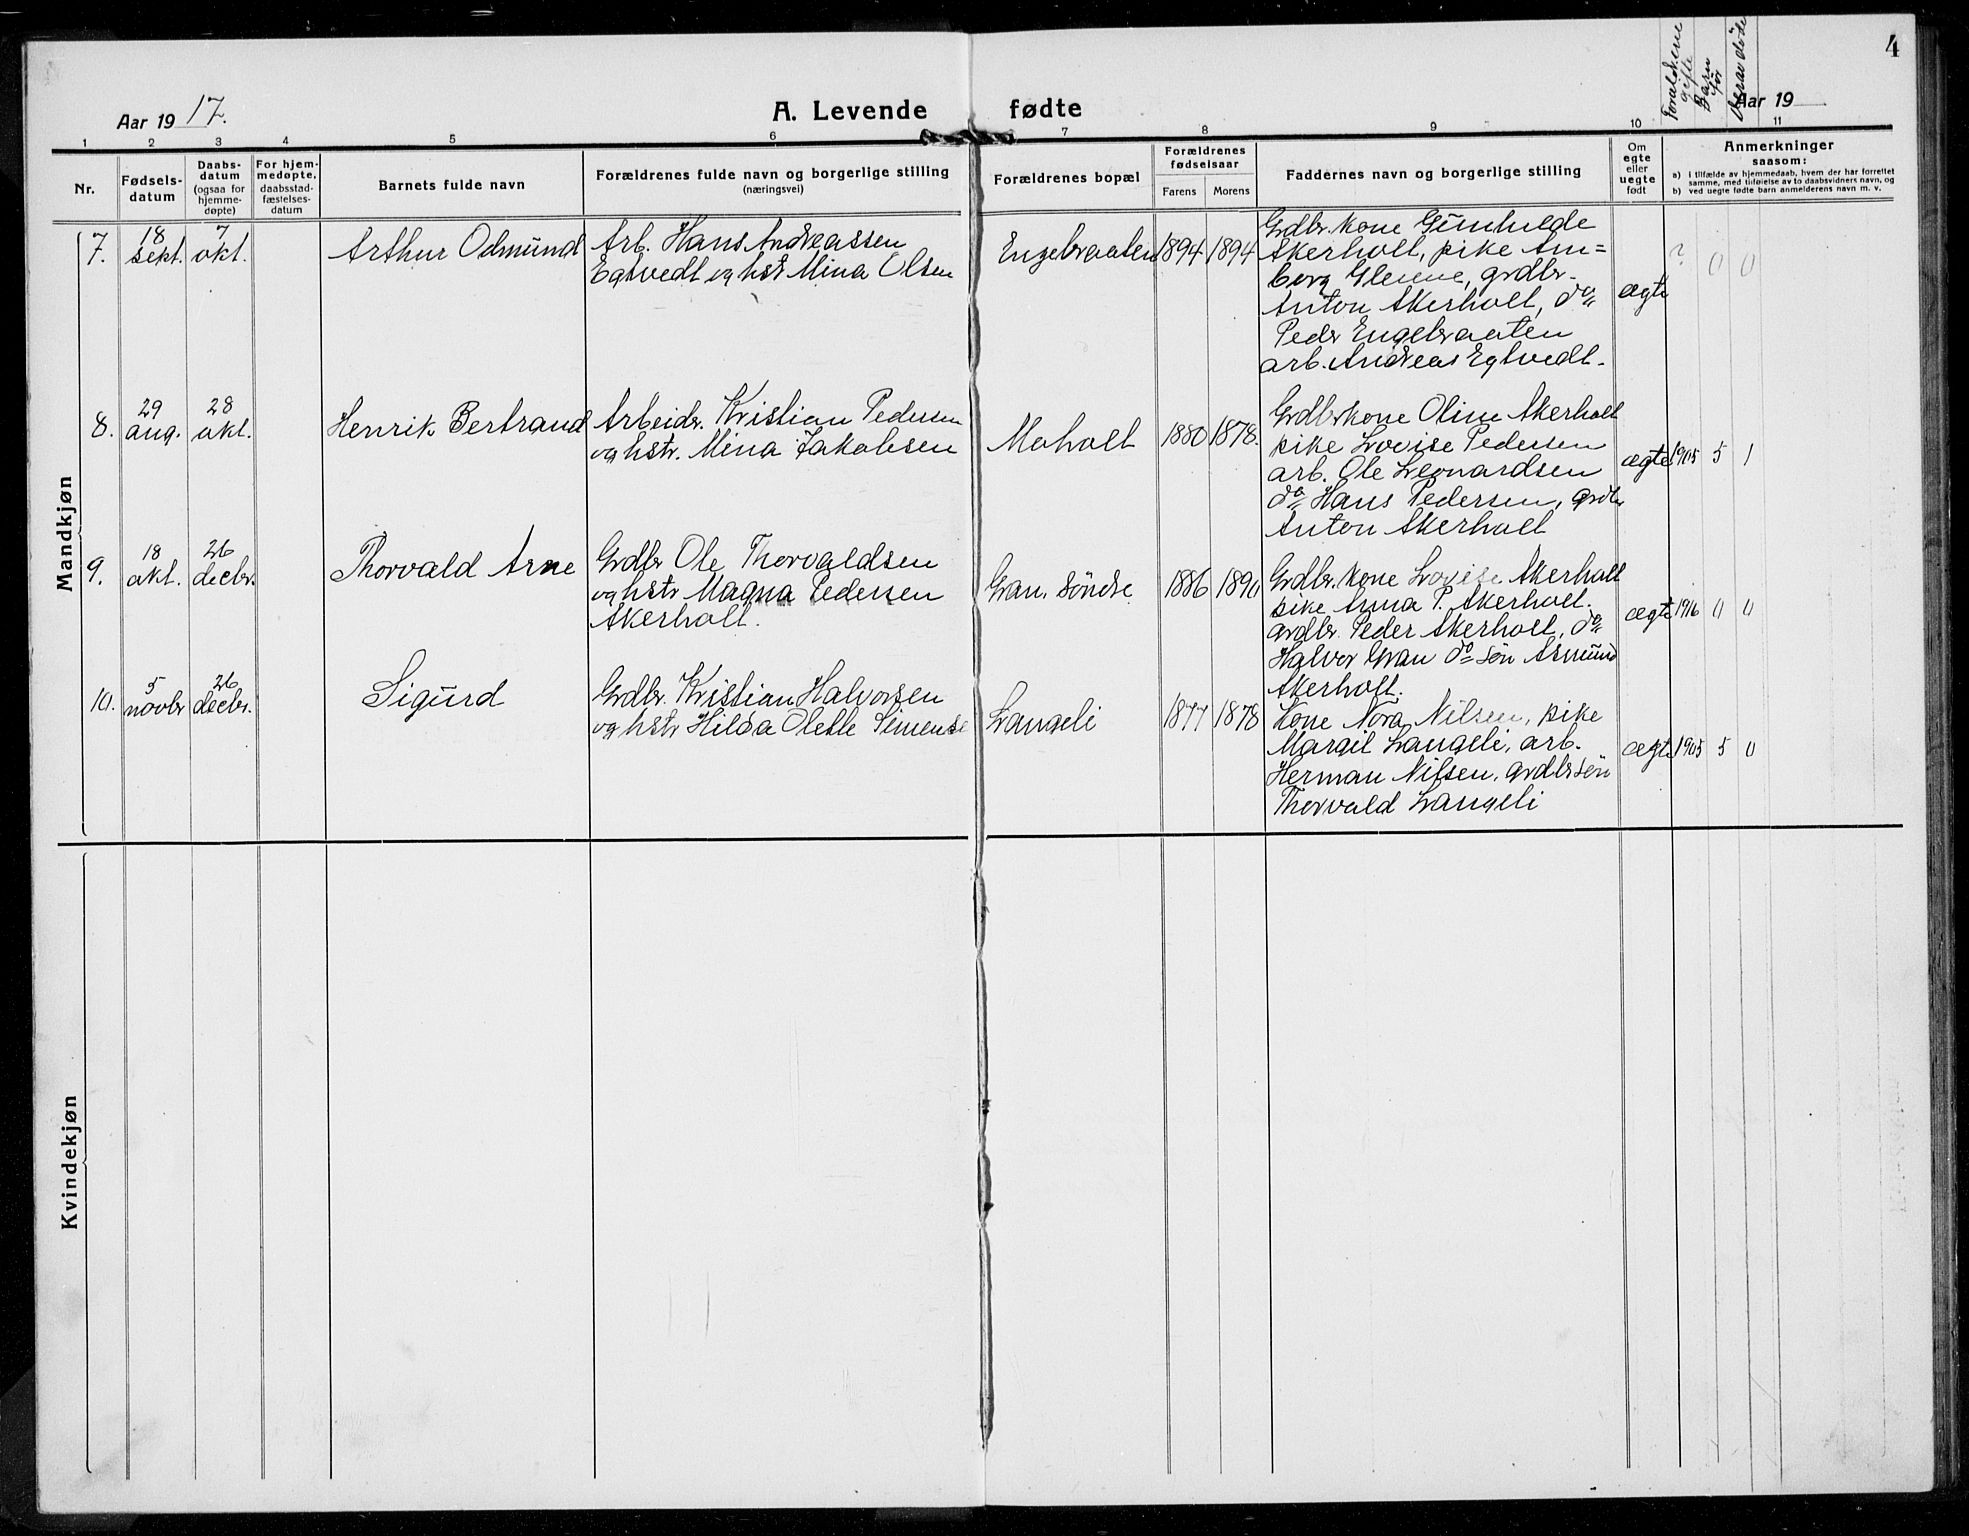 4
Forældrene gifte
Barn før
Derav døde
Aar 1917.
A. Levende fødte
Aar 19
1 2 3 4 5 6 7 8 9 10 11
Nr.
Fødsels-
datum
Daabs-
datum
(ogsaa for
hjemme-
døpte)
For hjem-
medøpte,
daabsstad-
fæstelses-
datum
Barnets fulde navn
Forældrenes fulde navn og borgerlige stilling
(næringsvei)
Forældrenes bopæl
Forældrenes
fødselsaar
Farens Morens
Faddernes navn og borgerlige stilling
Om
egte
eller
uegte
født
Anmerkninger
saasom:
a) i tilfælde av hjemmedaab, hvem der har forrettet
samme, med tilføielse av to daabsvidners navn, og
b) ved uegte fødte barn anmelderens navn m. v.
Mandkjøn
7.
18
sept.
7
okt.
Arthur Odmund
Arb. Hans Andreassen
Egtvedt og hst Mina Olsen
Engebraaten
1894 1894
Grdbr. kone Gunhilde
Akerholt, pike Am=
borg Glenne, grdbr.
Anton Akerholt, do
Peder Engebraaten
arb. Andreas Egtvedt.
ægte
? 0 0
8.
29
aug.
28
okt.
Henrik Bertrand
Arbeider Kristian Pedersen
og hstr. Mina Jakobsen
Moholt
1880 1878.
Grdbrkone Oline Akerholt
pike Lovise Pedersen
arb. Ole Leonardsen
do Hans Pedersen, grdbr
Anton Akerholt
ægte
1905 5 1
9.
18
okt.
26
decbr.
Thorvald Arne
Grdbr Ole Thorvaldsen
og hstr Magna Pedersen
Akerholt.
Gran, søndre
1886 1890
Grdbr. kone Lovise Akerholt
pike Anna P. Akerholt.
grdbr. Peder Akerholt, do
Halvor Gran do søn Asmund
Akerholt.
ægte
1916 0 0
10.
5
novbr
26
decbr.
Sigurd
Grdbr. Kristian Halvorsen
og hstr Hilda Olette Simense
Langeli
1877 1878
Kone Nora Nilsen, pike
Margit Langeli, arb.
Herman Nilsen, grdbrsøn
Thorvald Langeli
ægte
1905 5 0
Kvindekjøn